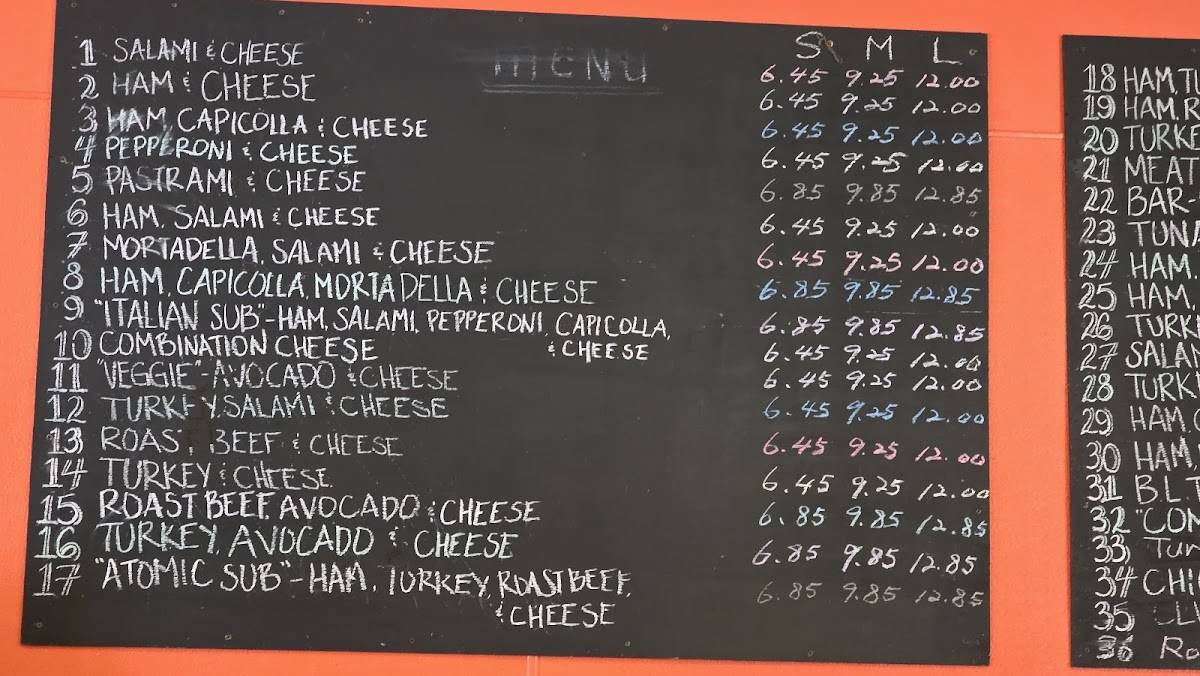 MENU
S M L
1 SALAMI & CHEESE 6.45 9.25 12.00
2 HAM & CHEESE 6.45 9.25 12.00
3 HAM, CAPICOLLA & CHEESE 6.45 9.25 12.00
4 PEPPERONI & CHEESE 6.45 9.25 12.00
5 PASTRAMI & CHEESE 6.85 9.85 12.85
6 HAM, SALAMI & CHEESE 6.45 9.25 12.00
7 MORTADELLA, SALAMI & CHEESE 6.45 9.25 12.00
8 HAM, CAPICOLLA, MORTADELLA & CHEESE 6.85 9.85 12.85
9 "ITALIAN SUB"-HAM, SALAMI, PEPPERONI, CAPICOLLA, 6.85 9.85 12.85
& CHEESE
10 COMBINATION CHEESE 6.45 9.25 12.00
11 "VEGGIE"-AVOCADO & CHEESE 6.45 9.25 12.00
12 TURKEY, SALAMI & CHEESE 6.45 9.25 12.00
13 ROAST BEEF & CHEESE 6.45 9.25 12.00
14 TURKEY & CHEESE 6.45 9.25 12.00
15 ROAST BEEF, AVOCADO & CHEESE 6.85 9.85 12.85
16 TURKEY, AVOCADO & CHEESE 6.85 9.85 12.85
17 "ATOMIC SUB"-HAM, TURKEY, ROAST BEEF, 6.85 9.85 12.85
& CHEESE
18 HAM, T
19 HAM, R
20 TURKE
21 MEAT
22 BAR-
23 TUNA
24 HAM,
25 HAM,
26 TURK
27 SALAM
28 TURK
29 HAM,
30 HAM,
31 BLT
32 "CO
33 TUR
34 CHI
35
36 Ro